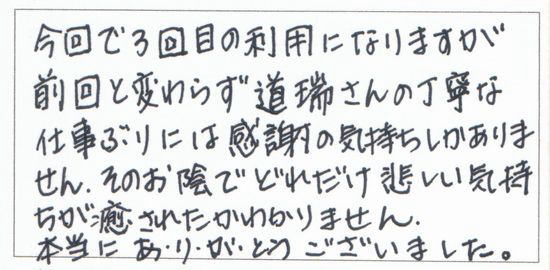 今回で3回目の利用になりますが
前回と変わらず道瑞さんの丁寧な
仕事ぶりには感謝の気持ちしかありま
せん.そのお陰でどれだけ悲しい気持
ちが癒されたかわかりません.
本当にあ・り・が・とうございました。